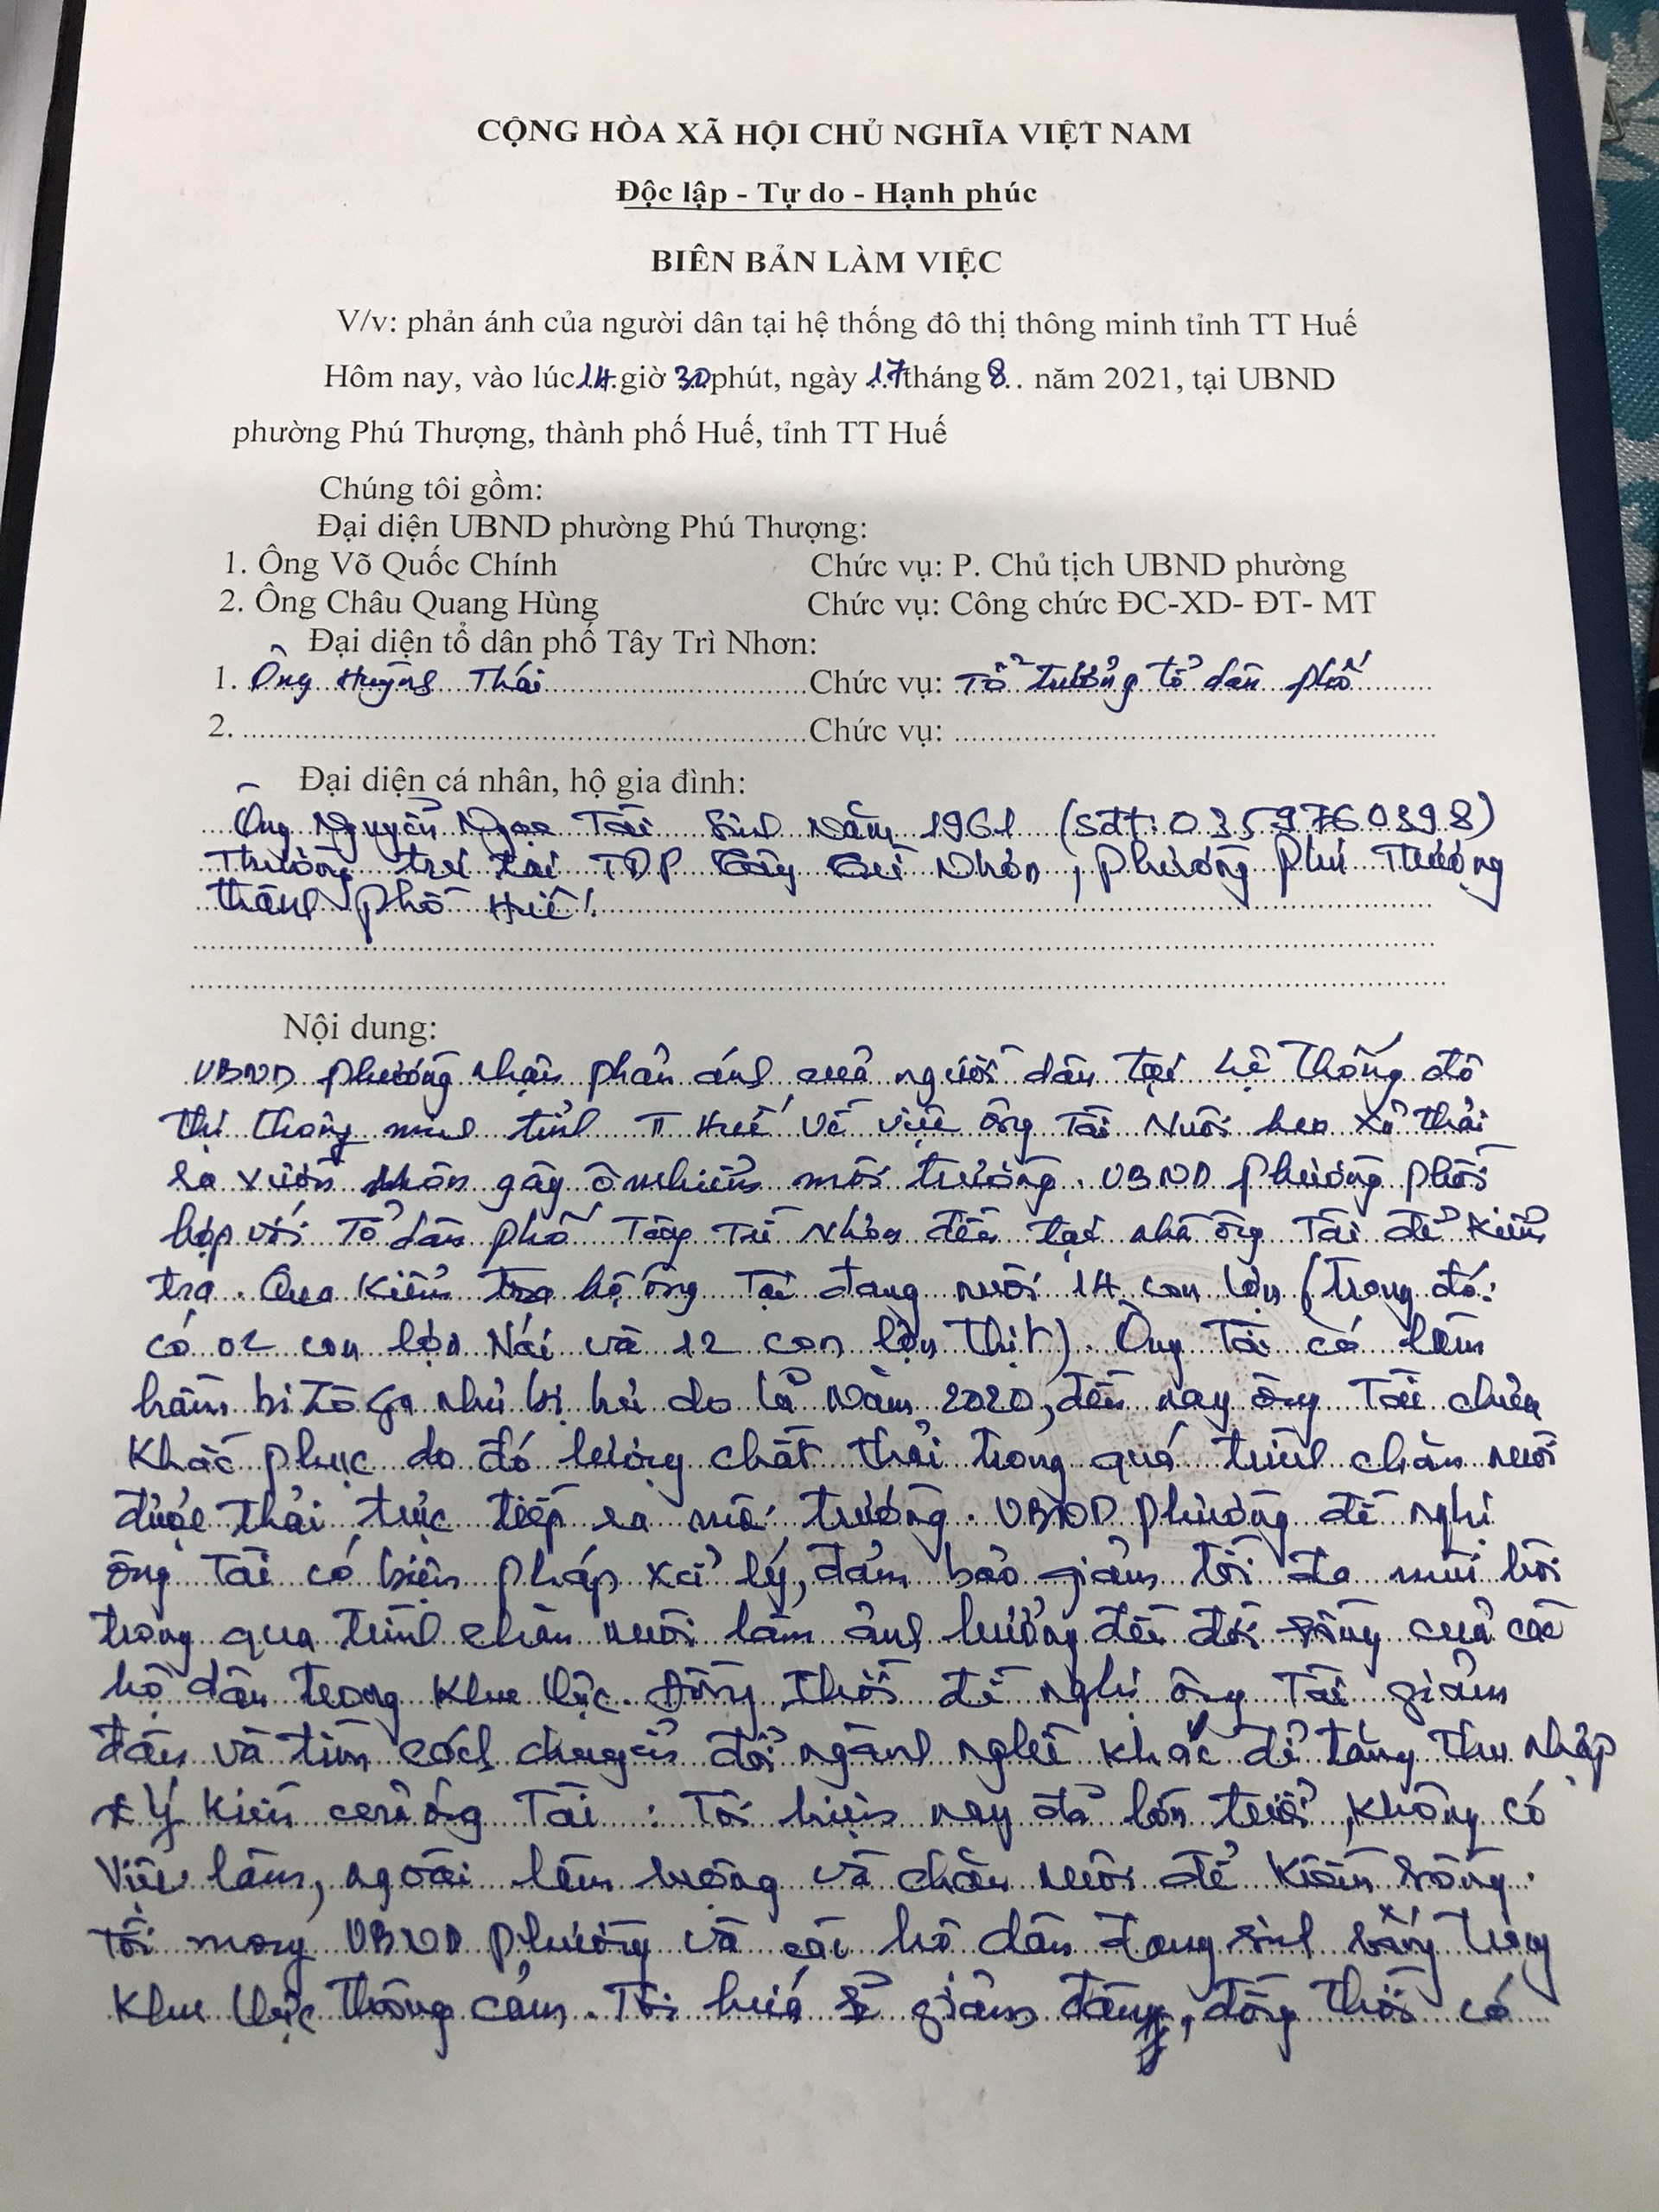 CỘNG HÒA XÃ HỘI CHỦ NGHĨA VIỆT NAM
Độc lập - Tự do - Hạnh phúc
BIÊN BẢN LÀM VIỆC
V/v: phản ánh của người dân tại hệ thống đô thị thông minh tỉnh TT Huế
Hôm nay, vào lúc 14 giờ 30 phút, ngày 17 tháng 8 năm 2021, tại UBND
phường Phú Thượng, thành phố Huế, tỉnh TT Huế
Chúng tôi gồm:
Đại diện UBND phường Phú Thượng:
1. Ông Võ Quốc Chính Chức vụ: P. Chủ tịch UBND phường
2. Ông Châu Quang Hùng Chức vụ: Công chức ĐC-XD- ĐT- MT
Đại diện tổ dân phố Tây Trì Nhơn:
1. Ông Huỳnh Thái Chức vụ: Tổ trưởng tổ dân phố
2. Chức vụ:
Đại diện cá nhân, hộ gia đình:
Ông Nguyễn Ngọc Tài Sinh năm 1961 (sđt: 0359760398)
Thường trú tại TDP Tây Trì Nhơn, phường Phú Thượng
thành phố Huế.
Nội dung:
UBND phường nhận phản ánh của người dân tại hệ thống đô
thị thông minh tỉnh TT Huế về việc ông Tài nuôi heo xả thải
ra vườn gây ô nhiễm môi trường. UBND phường phối
hợp với Tổ dân phố Tây Trì Nhơn đến tại nhà ông Tài để kiểm
tra. Qua kiểm tra hộ ông Tài đang nuôi 14 con lợn (trong đó:
có 02 con lợn Nái và 12 con lợn thịt). Ông Tài có làm
hầm bi ô ga như bị hư do lũ năm 2020, đến nay ông Tài chưa
khắc phục do đó lượng chất thải trong quá trình chăn nuôi
được thải trực tiếp ra môi trường. UBND phường đề nghị
ông Tài có biện pháp xử lý, đảm bảo giảm tối đa mùi hôi
trong qua trình chăn nuôi làm ảnh hưởng đến đời sống của các
hộ dân trong khu vực. Đồng thời đề nghị ông Tài giảm
đàn và tìm cách chuyển đổi ngành nghề khác để tăng thu nhập
* Ý kiến của ông Tài: Tôi hiện nay đã lớn tuổi, không có
việc làm, ngoài làm ruộng và chăn nuôi để kiếm sống.
Tôi mong UBND phường và các hộ dân đang sinh sống trong
khu vực thông cảm. Tôi hứa sẽ giảm đàn, đồng thời có